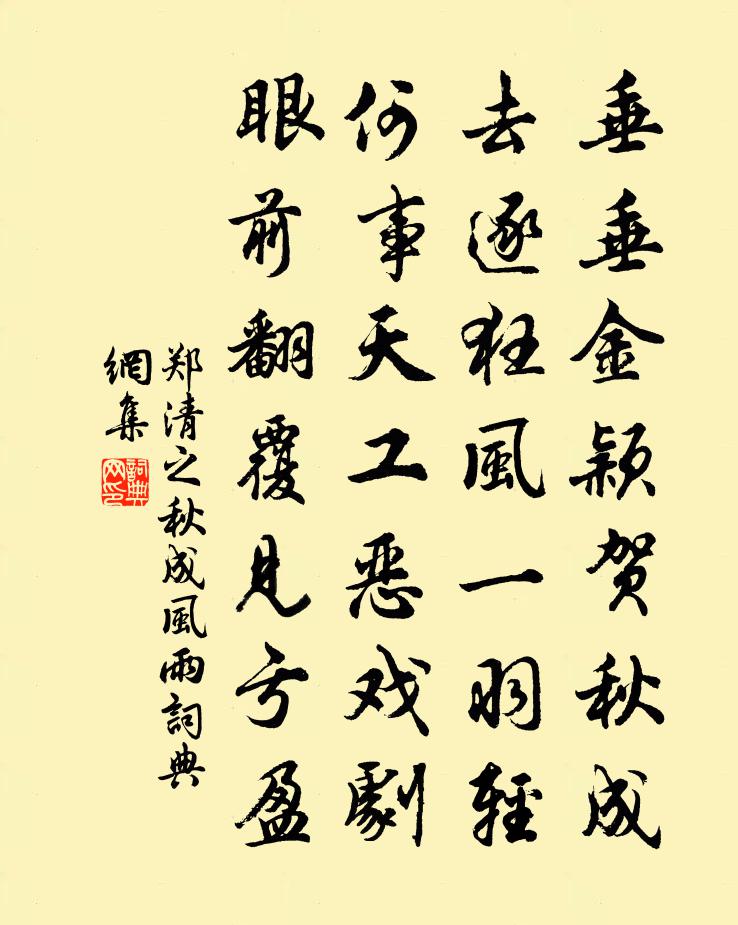 垂垂金颖贺秋成
去逐狂風一羽輕
何事天工恶戏劇
眼前翻覆見亏盈
郑清之秋成風雨詞典
網集
詞典網印